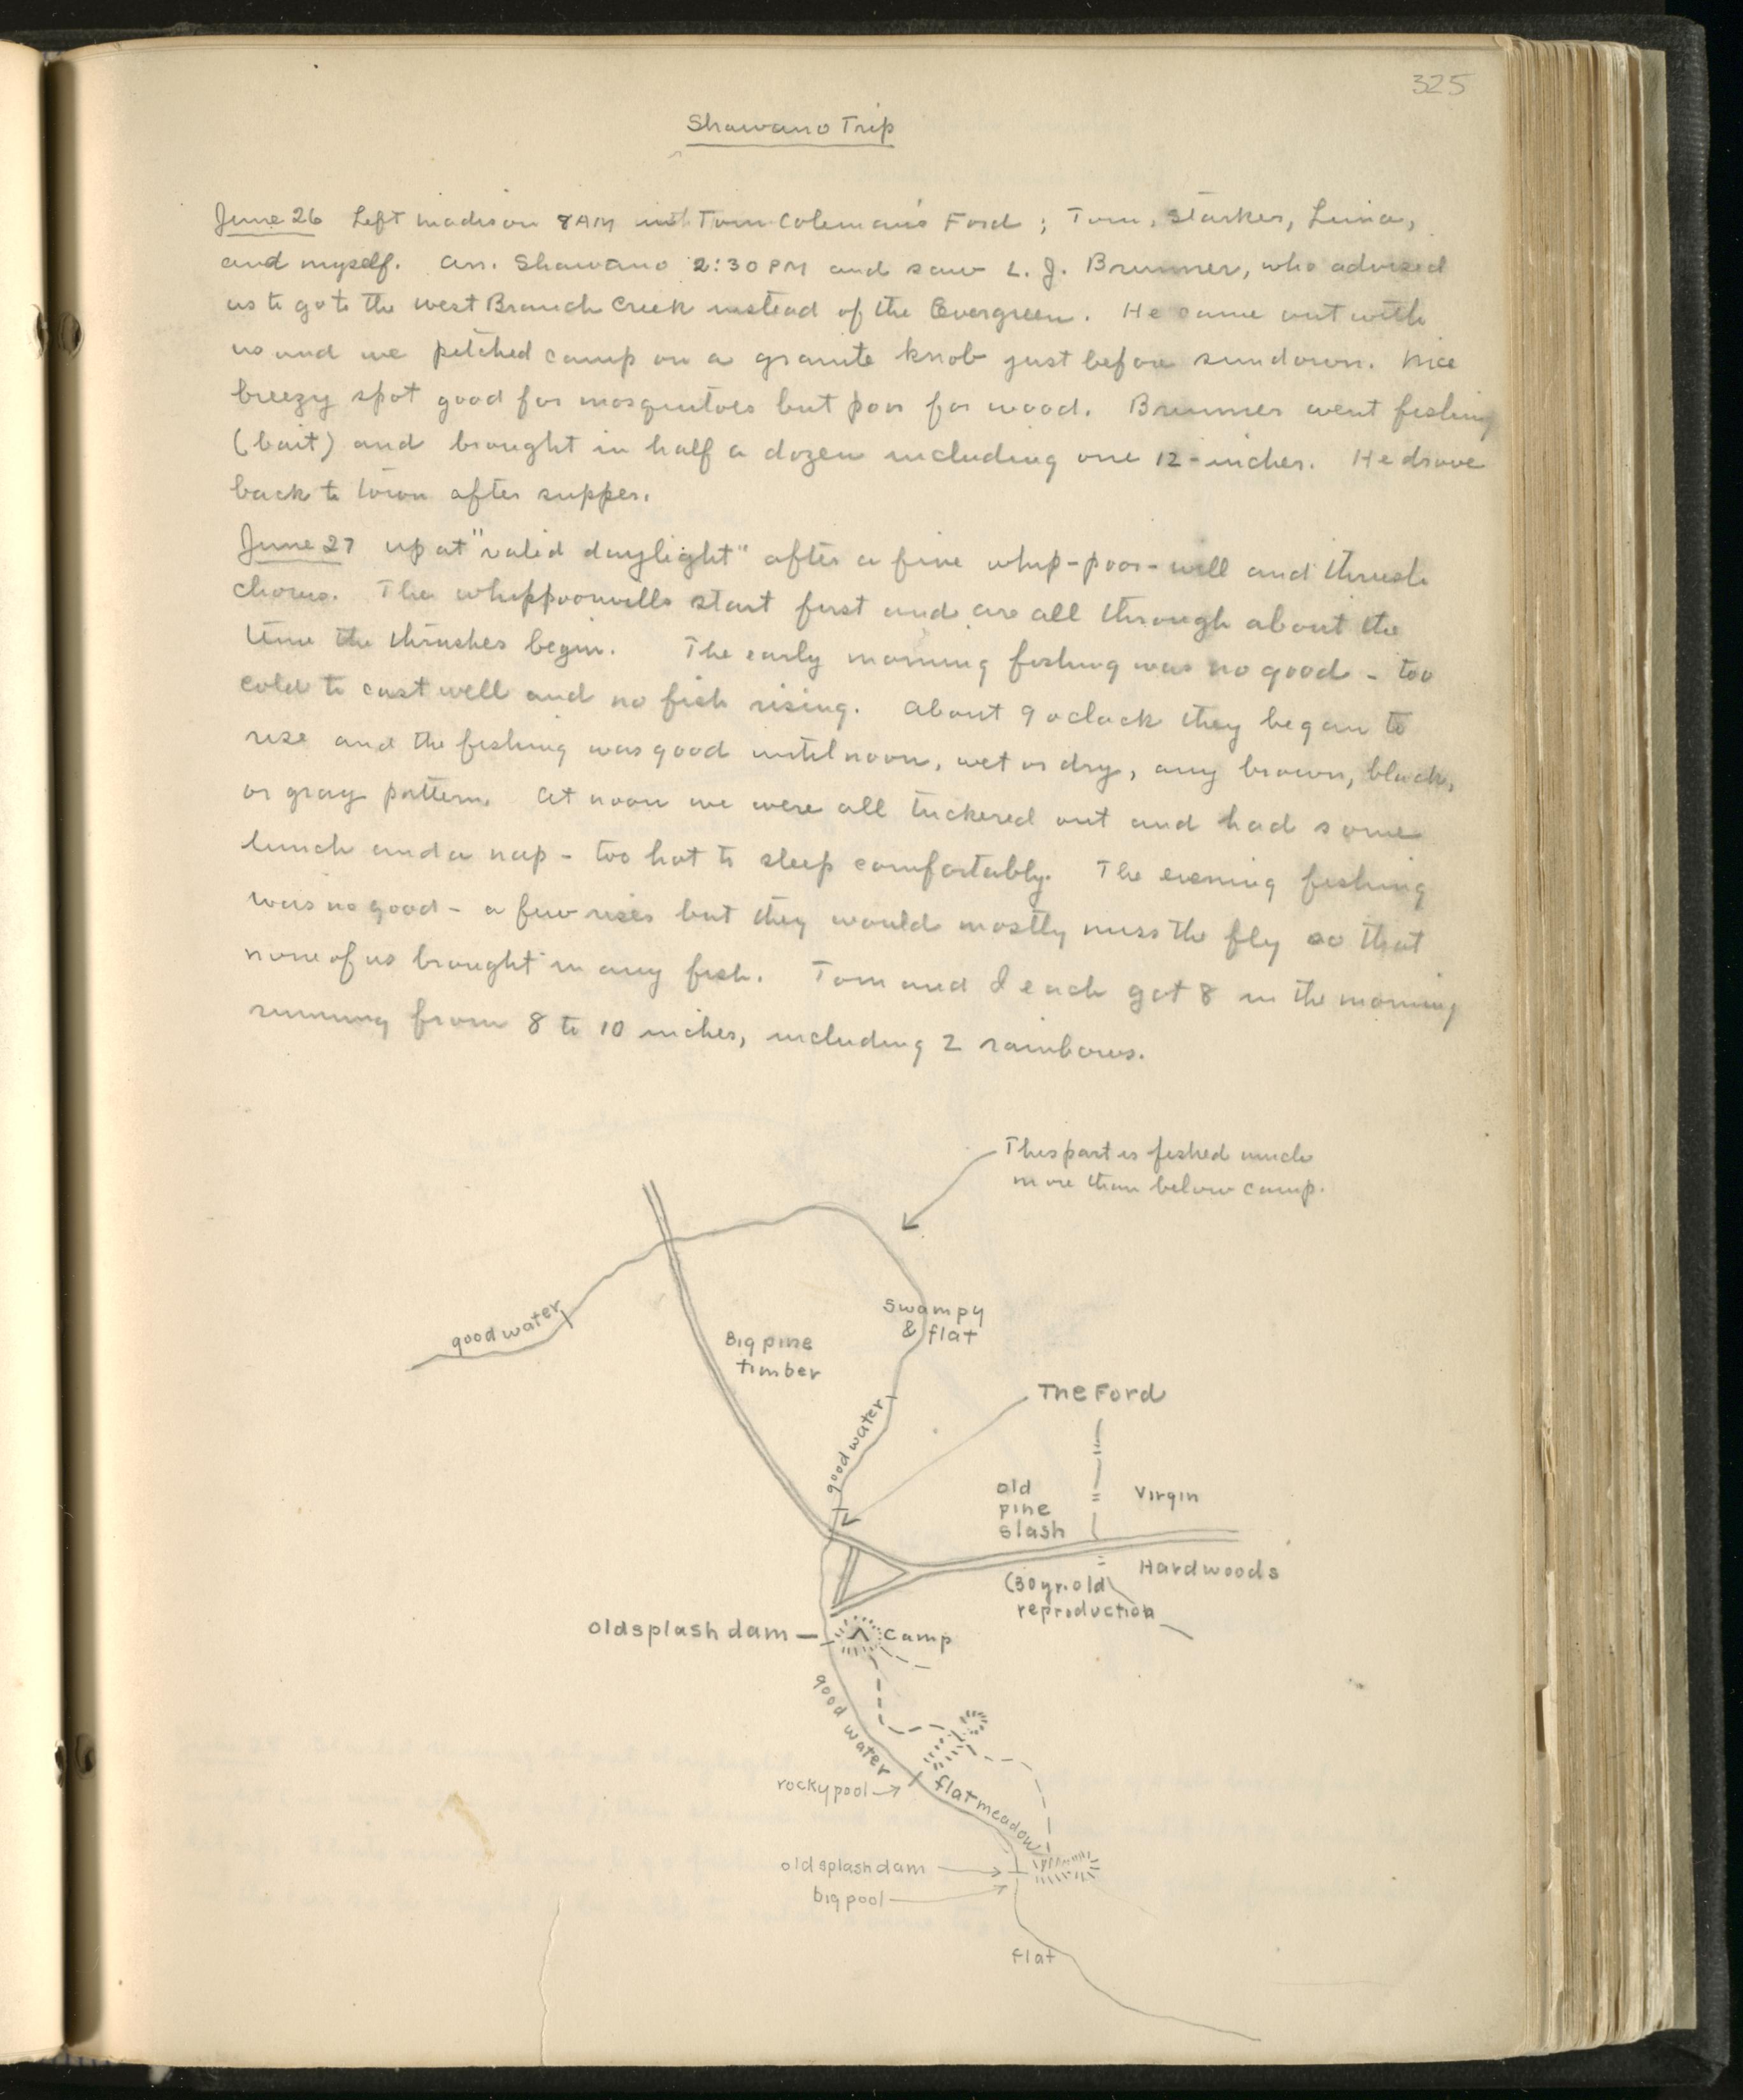 325
Shawano Trip
June 26 Left Madison 8AM in Tom Coleman's Ford; Tom, Starker, Luna,
and myself. Arr. Shawano 2:30 PM and saw L. J. Brunner, who advised
us to go to the West Branch Creek instead of the Evergreen. He came out with
us and we pitched camp on a granite knob just before sundown. Nice
breezy spot good for mosquitoes but poor for wood. Brunner went fishing
(bait) and brought in half a dozen including one 12-incher. He drove
back to town after supper.
June 27 up at "valid daylight" after a fine whip-poor-will and thrush
chorus. The whippoorwills start first and are all through about the
time the thrushes begin. The early morning fishing was no good - too
cold to cast well and no fish rising. About 9 oclock they began to
rise and the fishing was good until noon, wet or dry, any brown, black,
or gray pattern. At noon we were all tuckered out and had some
lunch and a nap - too hot to sleep comfortably. The evening fishing
was no good - a few rises but they would mostly miss the fly so that
none of us brought in any fish. Tom and I each got 8 in the morning
running from 8 to 10 inches, including 2 rainbows.
This part is fished much
more than below camp.
good water
Big pine
timber
Swampy
& flat
The Ford
good water
old
pine
slash
Virgin
Hardwoods
(30 yr. old
reproduction
old splash dam
Camp
good water
rocky pool
flat meadow
old splash dam
big pool
flat